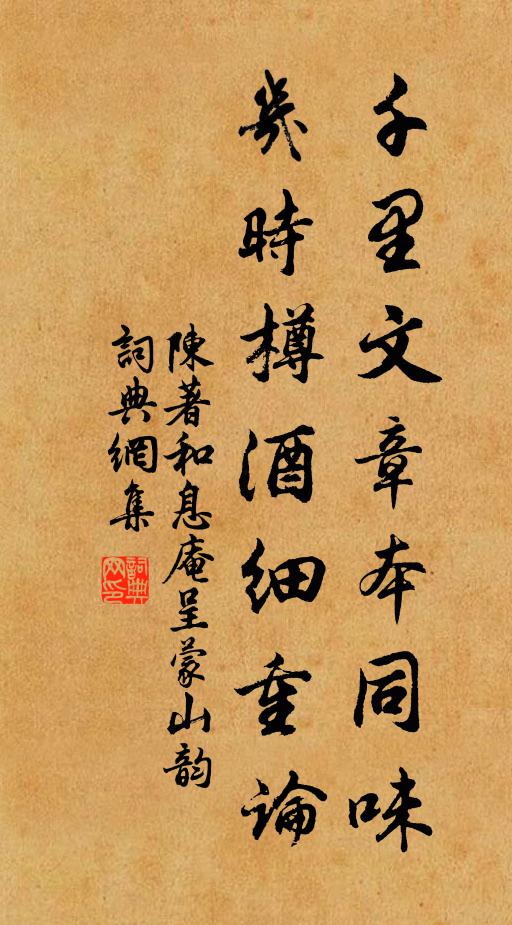 千里文章本同味
幾時樽酒細重論
陳著和息庵呈蒙山韵
詞典網集
詞典网印